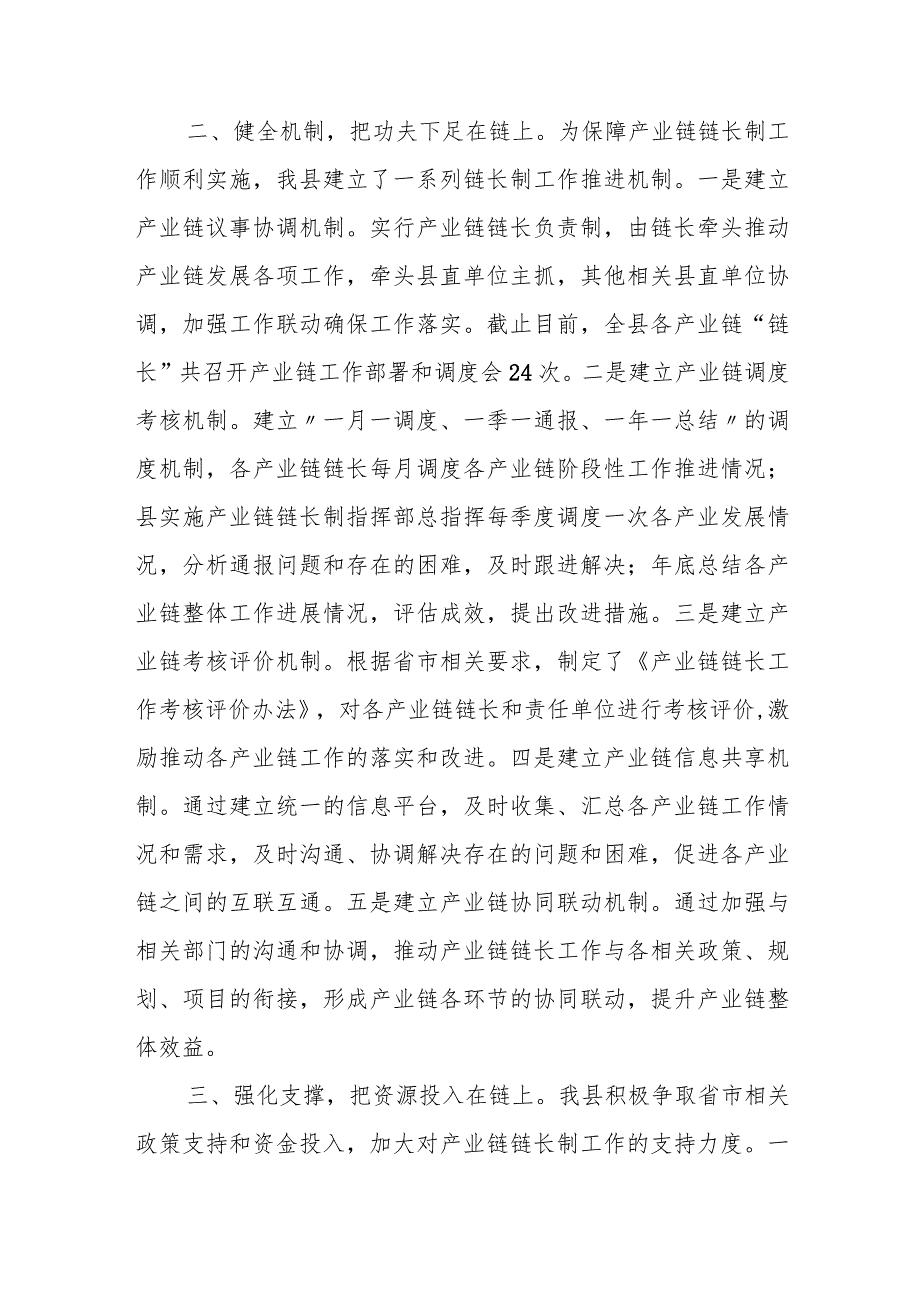 二、健全机制，把功夫下足在链上。为保障产业链链长制工
作顺利实施，我县建立了一系列链长制工作推进机制。一是建立
产业链议事协调机制。实行产业链链长负责制，由链长牵头推动
产业链发展各项工作，牵头县直单位主抓，其他相关县直单位协
调，加强工作联动确保工作落实。截止目前，全县各产业链“链
长”共召开产业链工作部署和调度会24次。二是建立产业链调度
考核机制。建立〃一月一调度、一季一通报、一年一总结〃的调
度机制，各产业链链长每月调度各产业链阶段性工作推进情况；
县实施产业链链长制指挥部总指挥每季度调度一次各产业发展情
况，分析通报问题和存在的困难，及时跟进解决；年底总结各产
业链整体工作进展情况，评估成效，提出改进措施。三是建立产
业链考核评价机制。根据省市相关要求，制定了《产业链链长工
作考核评价办法》，对各产业链链长和责任单位进行考核评价,激
励推动各产业链工作的落实和改进。四是建立产业链信息共享机
制。通过建立统一的信息平台，及时收集、汇总各产业链工作情
况和需求，及时沟通、协调解决存在的问题和困难，促进各产业
链之间的互联互通。五是建立产业链协同联动机制。通过加强与
相关部门的沟通和协调，推动产业链链长工作与各相关政策、规
划、项目的衔接，形成产业链各环节的协同联动，提升产业链整
体效益。
三、强化支撑，把资源投入在链上。我县积极争取省市相关
政策支持和资金投入，加大对产业链链长制工作的支持力度。一